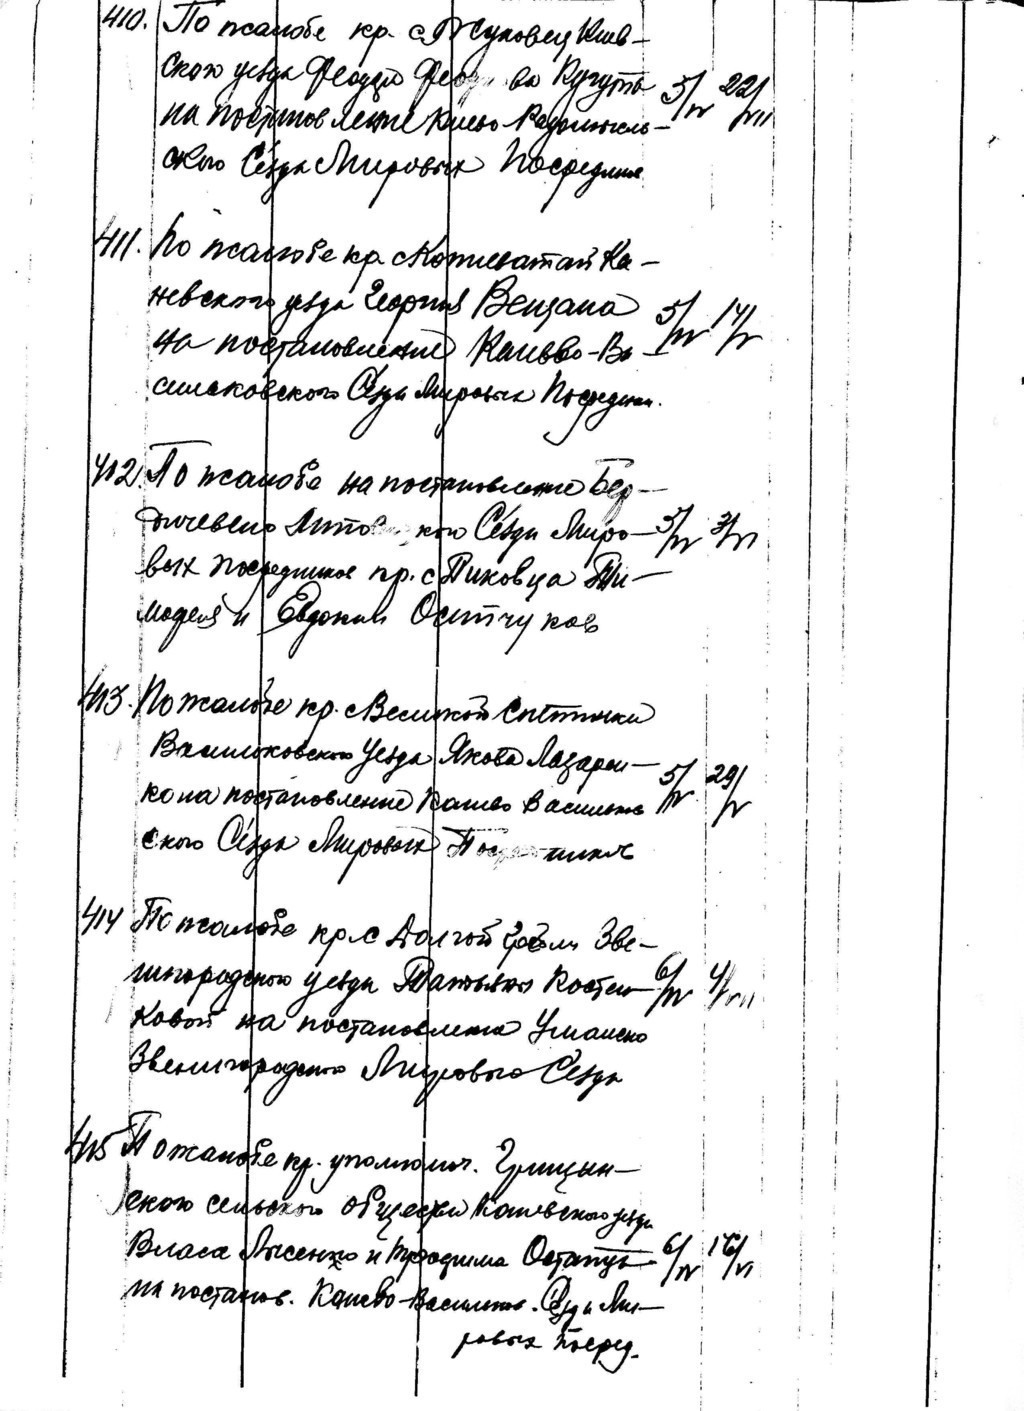 410. По жалобе кр. с Жуковец Киев-
ского уезда Феодула Кугута 5/IV 22/VII
на постановление Киево Радомысль-
ского Сезда Мировых Посредник
411. По жалобе кр с Копиеватай Ка-
невского уезда Георгия Вещана 5/IV 14/V
на постановление Канево-Ва-
сильковского Сезда Мировых Посредник.
412. По жалобе на постановление Бер-
дичевско Липовецкого Сезда Миро- 5/IV 3/VI
вых посредников кр. с Пиковца Ти-
мофея и Евдокии Осипчуков
413. По жалобе кр. с Великой Снетинки
Васильковского Уезда Якова Лазарен- 5/IV 29/V
ко на постановление Канево Васильков
ского Сезда Мировых Посредников
414 По жалобе кр с Долгой Гребли Зве-
нигородского уезда Татьяны Костен- 6/IV 4/VII
ковой на постановление Уманско
Звенигородского Мирового Сезда
415 По жалобе кр. уполномоч. Грищин-
ского сельского общества Каневского уезда
Власа Лысенко и Трофима Остапця 6/IV 16/VI
на постанов. Канево-Васильков. Сезда Ми-
ровых Посред.